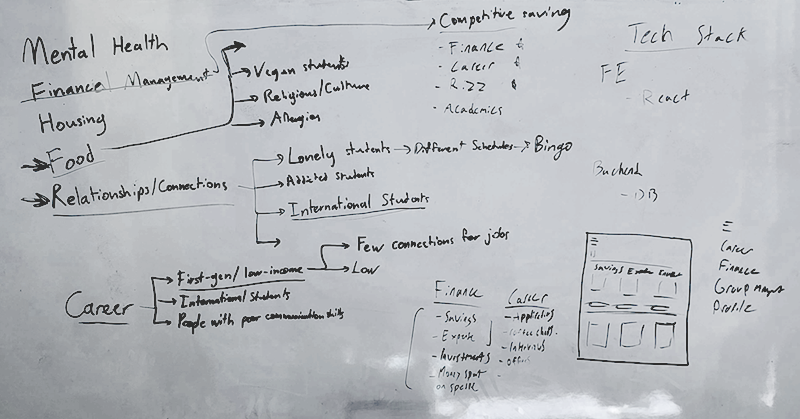 Mental Health
Financial Management
Housing
Food
Relationships/Connections
Vegan students
Religious/Culture
Allergies
Competitive saving
- Finance
- Career
- Rizz
- Academics
Tech Stack
FE
- React
Backend
- DB
Lonely students → Different Schedules → Bingo
Addicted students
International Students
Career
First-gen/low-income
International Students
People with poor communication skills
Few connections for jobs
Low
Finance
- Savings
- Expense
- Investments
- Money spent
on
Career
- Applications
- Interviews
- Offers
Savings
Career
Finance
Profile